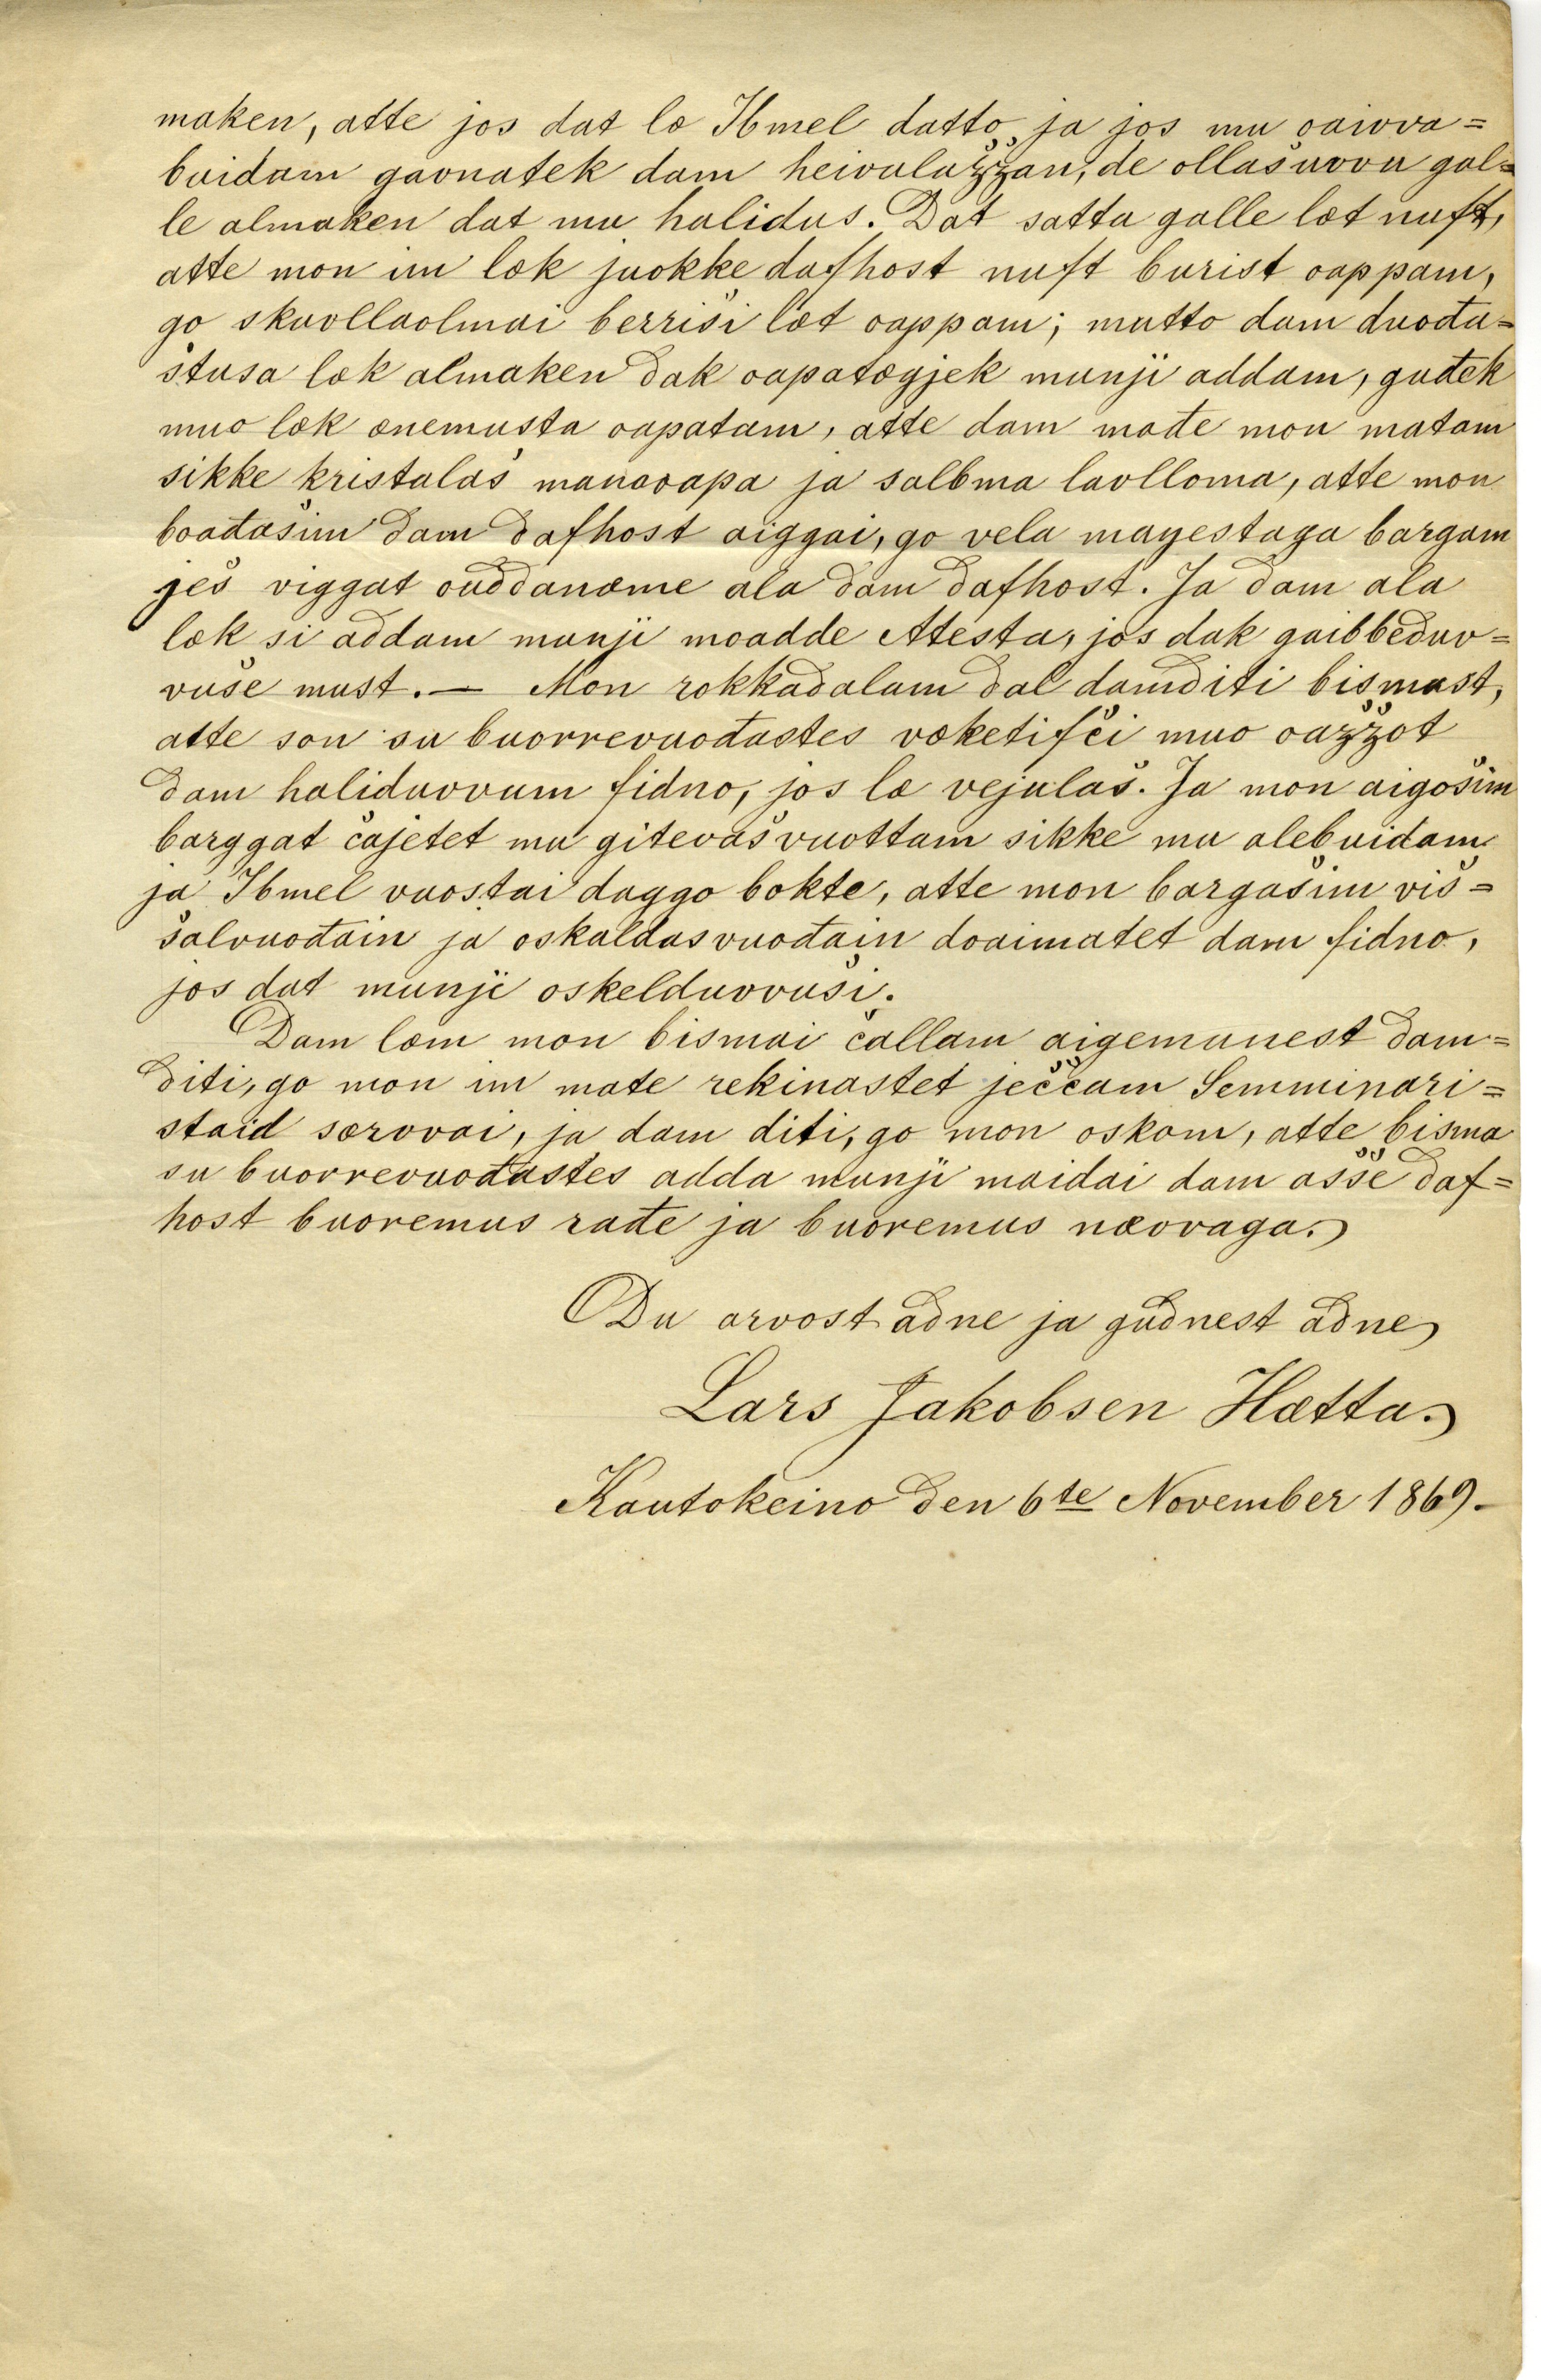 maken, atte jos dat læ Ibmel datto, ja jos mu oaivva=
buidam gavnatek dam heivalažžan, de ollašuvvu gal=
le almaken dat mu halidus. Dat satta galle læt nuft,
atte mon im læk juokke dafhost nuft burist oappam,
go skuvllaolmai berriši læt oappam; mutto dam duođa=
stusa læk almaken dak oapatægjek munji addam, guđek
muo læk ænemusta oapatam, atte dam mađe mon matam
sikke kristalaš manaoapa ja salbma lavlloma, atte mon
boađašim dam dafhost aiggai, go vela mayestaga bargam
ješ viggat ouddanæme ala dam dafhost. Ja dam ala
læk si addam munji moadde Attesta, jos dak gaibbeduv=
vuše must. — Mon rokkadalam dal damditi bismast,
atte son su buorrevuođastes væketifči muo oažžot
dam haliduvvum fidno, jos læ vejulaš. Ja mon aigošim
barggat čajetet mu gitevašvuottam sikke mu alebuidam
ja Ibmel vuostai daggo bokte, atte mon bargašim viš=
šalvuođain ja oskaldasvuođain doaimatet dam fidno,
jos dat munji oskelduvvuši.
Dam læm mon bismai čallam aigemunest dam=
diti, go mon im mate rekinastet ječčam Semminari=
staid særvvai, ja dam diti, go mon oskom, atte bisma
su buorrevuođastes adda munji maidai dam ašše daf=
host buoremus rađe ja buoremus nævvaga.
Du arvost adne ja gudnest adne
Lars Jakobsen Hætta.
Kautokeino den 6te November 1869.